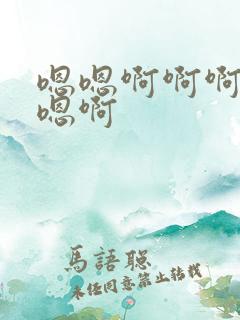 嗯嗯啊啊啊
嗯啊
馬語聡
未任同意禁止转载